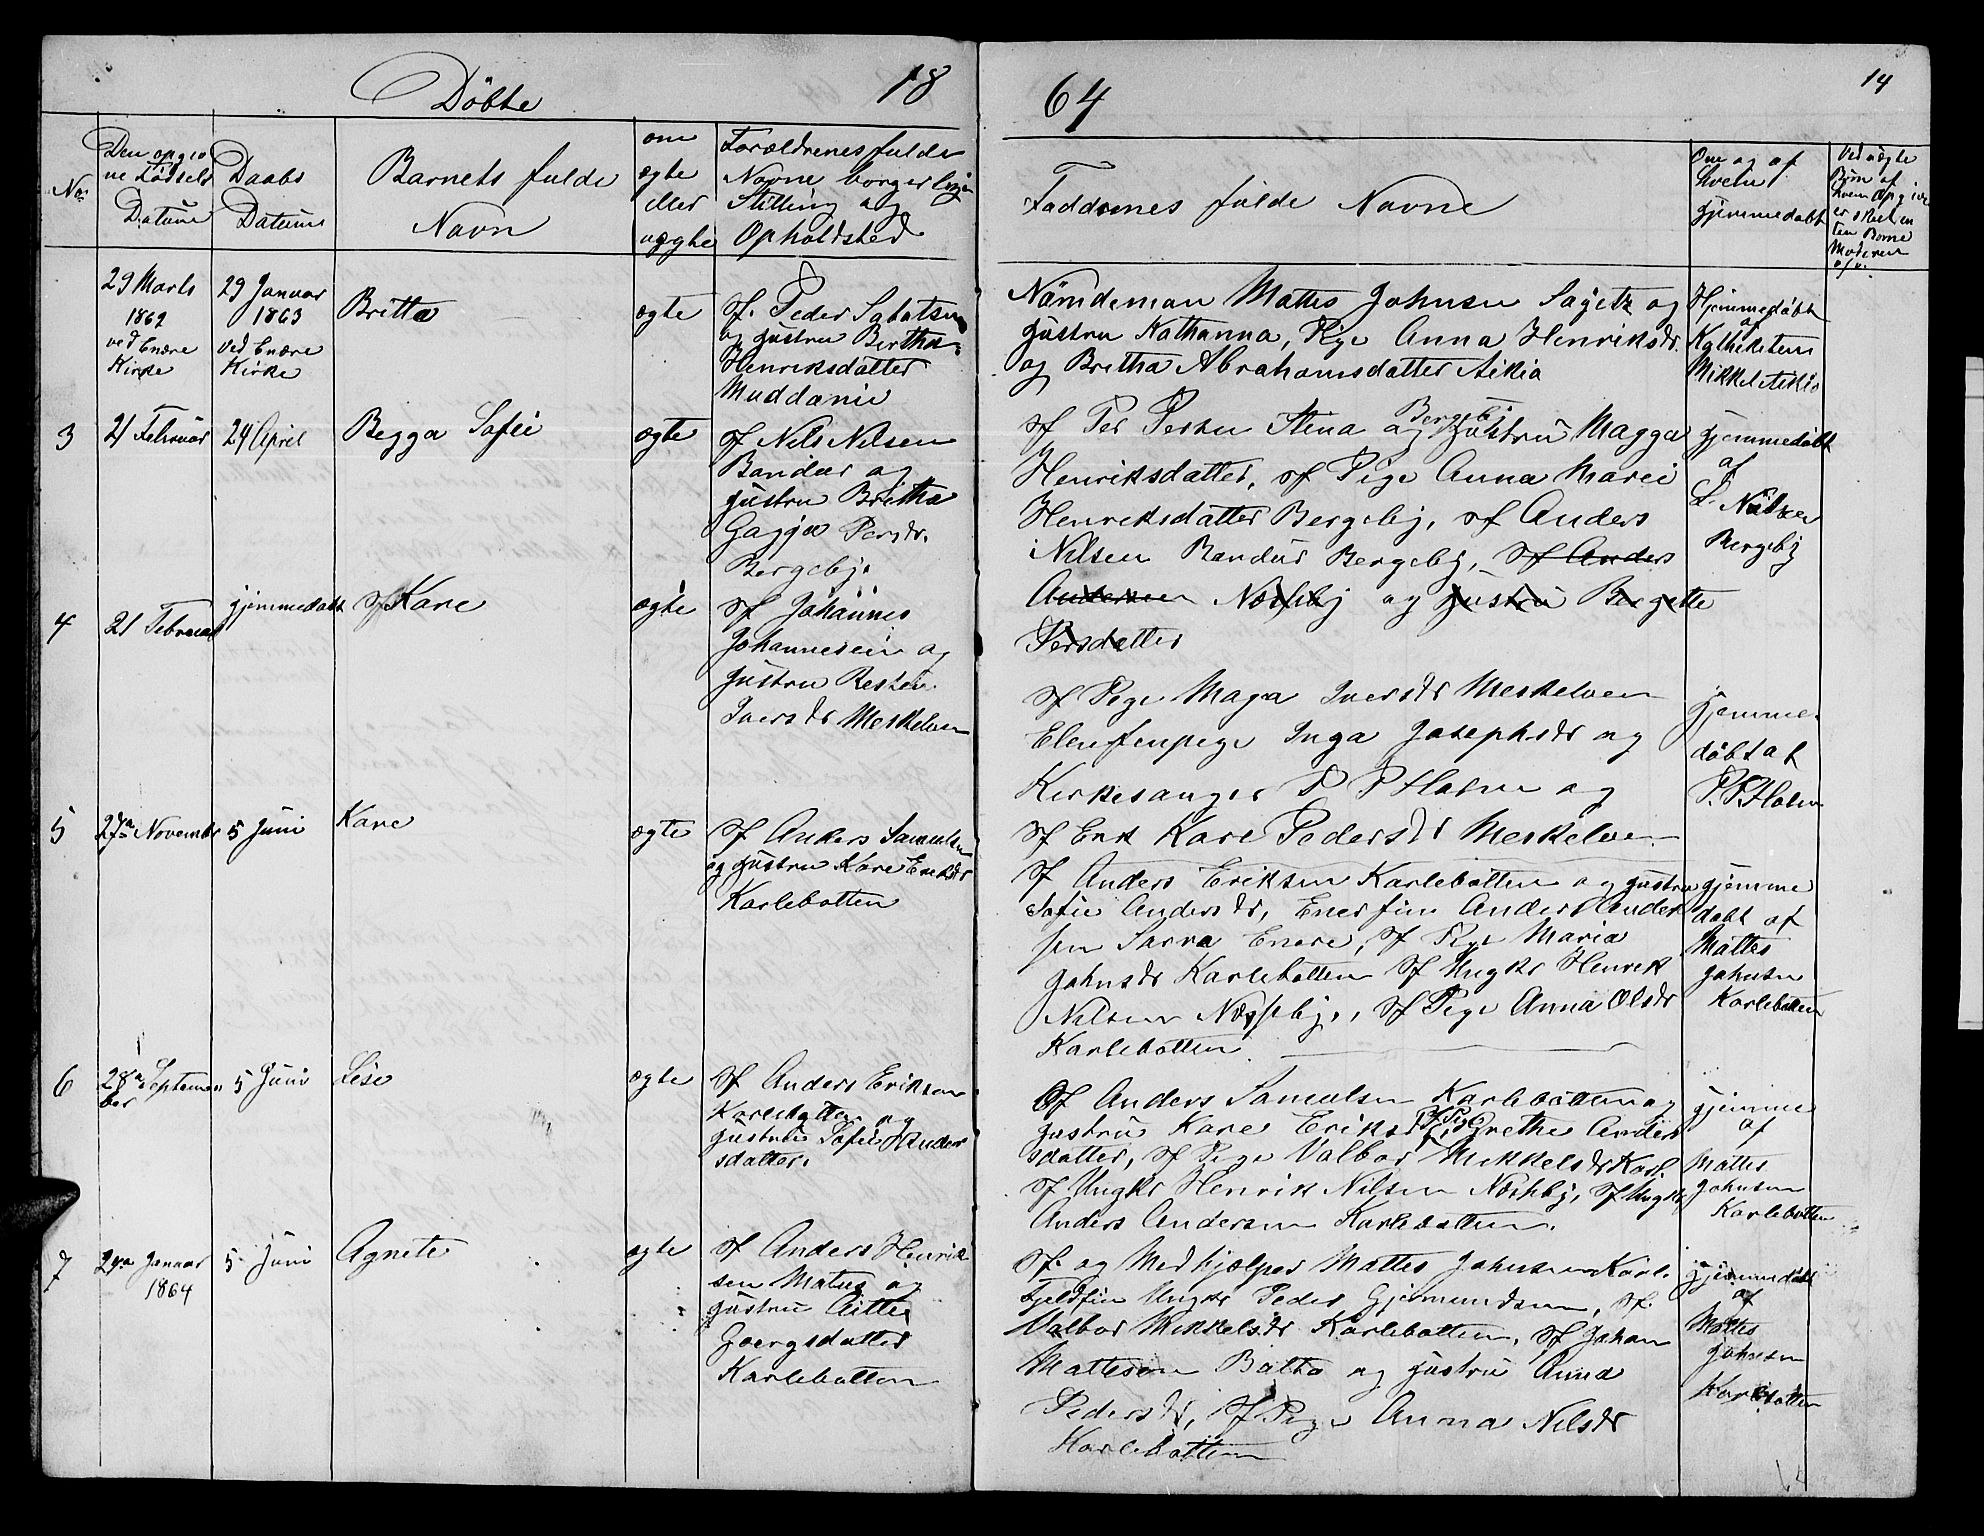 Döbte 18
64
14
No:
Den opgiv
ne Födsels
Datum
Daabs
Datum
Barnets fulde
Navn
om
ægte
eller
uægte
Forældrenes fulde
Navne borgerlige
Stilling og
Opholdsted
Faddernes fulde Navne
Om og af
hvem
hjemmedøbt
Ved uægte
Börn af
hvem Opgive
er sket en
ten Borne
Moderen
29 Marts
1862
ved Enare
Kirke
29 Januar
1863
ved Enare
Kirke
Britta
ægte
Sf. Peder
og Hustru Birtha
Henriksdatter
Muddanie
Nämdeman Mattes Johnsen Sajetz og
Hustru Kathanna, Pige Anna Henriksdr.
og Britha Abrahamsdatter Aikia
Hjemmedøbt
af
Katheketen
Mikkel Aikio
3
21 Februar
24 April
Begga Sofie
ægte
Sf Nils Nilsen
Bandur og
Hustru Britha
Gagga Persdr.
Bergeby.
Bergeby
Sf Per Persen Stena og Hustru Magga
Henriksdatter, Sf Pige Anna Marei
Henriksdatter Bergeby, Sf Anders
Nilsen Bandur Bergeby, Sf Anders
Andersen Næsseby og Hustru Bergette
Persdatter
Hjemmedøbt
af
P. Nilsen
Bergeby
4
21 Februar
Hjemmedøbt
Sf Kare
ægte
Sf Johannes
Johannesen og
Hustru Resten
Iversdr Meskelven
Sf Pige Maga Iversdr Meskelven
Elevfinpige Inga Josephsdr og
Kirkesanger P P Holm og
Sf Enk Kare Pedersdr Meskelven.
Hjemme-
døbt af
P. P. Holm
5
27de November
5 Juni
Kare
ægte
Sf Anders Samulsen
og Hustru Kare Eriksdr
Karlebotten
Sf Anders Eriksen Karlebotten og Hustru
Sofie Andersdr, Enerfin Anders Ander
sen Sarra Enare, Sf Pige Maria
Johnsdr Karlebotten Sf Ungkr Henrik
Nilsen Næsseby, Sf Pige Anna Olsdr
Karlebotten
Hjemme
døbt af
Mattes
Johnsen
Karlebotten
6
28de Septem
ber
5 Juni
Lise
ægte
Sf Anders Eriksen
Karlebotten og
Hustru Sofie Anders
datter.
Sf Anders Samulsen Karlebotten og
Hustru Kare Eriksdr, Sf Pige Grethe Anders
datter, Sf Pige Valbor Mikkelsdr Karl.
Sf Ungkr Henrik Nilsen Næsseby, Sf Ungkr
Anders Andersen Karlebotten.
Hjemme
af
Mattes
Johnsen
Karlebotten
7
24de Januar
1864
5 Juni
Agnete
ægte
Sf Anders Henrik
sen Matus og
Hustru Aitte
Goergsdatter
Karlebotten
Sf. og Medhjælper Mattes Johnsen Karl.
Fjeldfin Ungkr Peder Gjermundsen, Sf.
Valbor Mikkelsdr Karlebotten, Sf Johan
Mattesen Balto og Hustru Anna
Pedersdr, Sf Pige Anna Nilsdr
Karlebotten
Hjemmedøbt
af
Mattes
Johnsen
Karlebotten